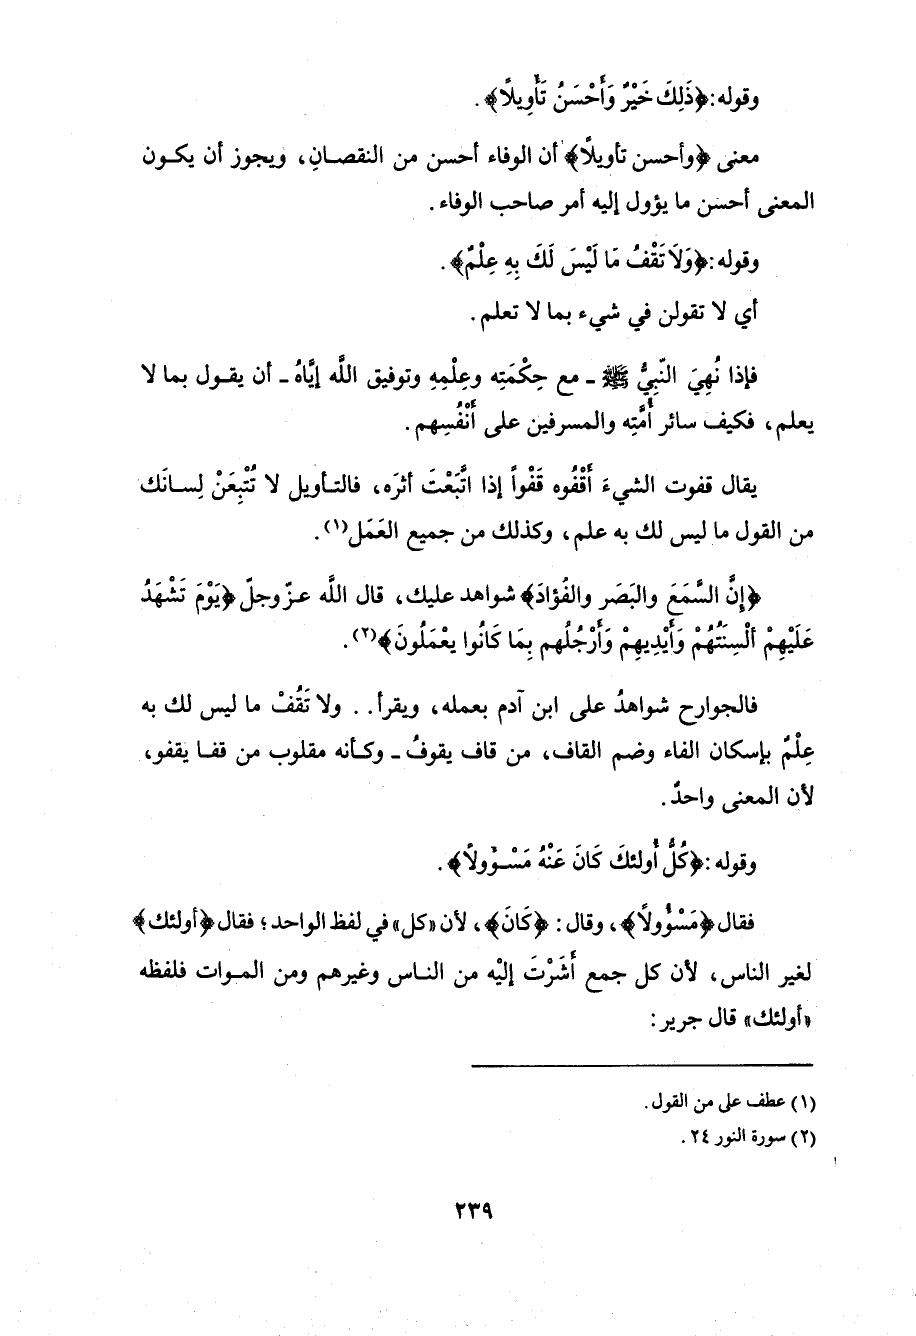 وقوله: ﴿ذَلِكَ خَيْرٌ وَأَحْسَنُ تَأْوِيلًا﴾.
معنى ﴿وأحسن تأويلًا﴾ أن الوفاء أحسن من النقصانِ، ويجوز أن يكـون
المعنى أحسن ما يؤول إليه أمر صاحب الوفاء.
وقوله: ﴿وَلَا تَقْفُ مَا لَيْسَ لَكَ بِهِ عِلْمٌ﴾.
أي لا تقولن في شيء بما لا تعلم.
فإذا نُهِيَ النّبِيُّ ﷺ ـ مع حِكْمَتِه وعِلْمِهِ وتوفيق اللَّه إيَّاهُ ـ أن يقـول بما لا
يعلم، فكيف سائر أُمَّتِه والمسرفين على أَنْفُسِهم.
يقال قفوت الشيءَ أَقْفُوه قَفْواً إذا اتَّبَعْتَ أثرَه، فالتـأويل لا تُتْبِعَنْ لِسـانَك
من القول ما ليس لك به علم، وكذلك من جميع العَمَل(١).
﴿إِنَّ السَّمَعَ والبَصَر والفُؤادَ﴾ شواهد عليك، قال اللَّه عـزّ وجلّ ﴿يَوْمَ تَشْهَدُ
عَلَيْهِمْ ألْسِنَتُهُمْ وَأَيْدِيهِمْ وَأَرْجُلُهم بِمَا كَانُوا يعْمَلُونَ﴾(٢).
فالجوارح شواهدُ على ابن آدم بعمله، ويقرأ.. ولا تَقُفْ ما ليس لك به
عِلْمٌ بإسكان الفاء وضم القاف، من قاف يقوفُ ـ وكـأنه مقلوب من قفـا يقفو،
لأن المعنى واحدٌ.
وقوله: ﴿كُلُّ أُولئكَ كَانَ عَنْهُ مَسْـؤولًا﴾.
فقال ﴿مَسْؤُولًا﴾، وقال: ﴿كَانَ﴾، لأن «كل» في لفظ الواحد؛ فقال ﴿أولئك﴾
لغير الناس، لأن كل جمع أَشَرْتَ إليْه من النـاس وغيرهم ومن المـوات فلفظه
«أولئك» قال جرير:
(١) عطف على من القول.
(٢) سورة النور ٢٤.
٢٣٩